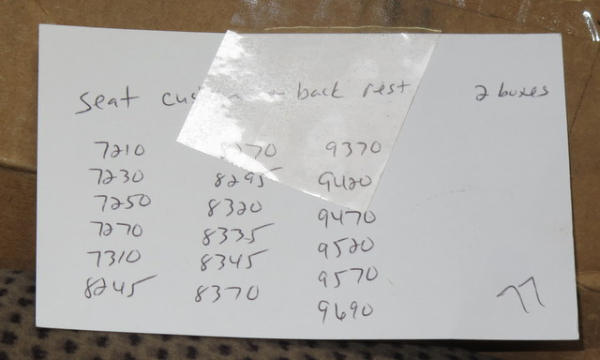 seat back rest 2 boxes
7210 9370
7230 8295 9420
7250 8320 9470
7270 8335 9520
7310 8345 9570
8245 8370 9690
77